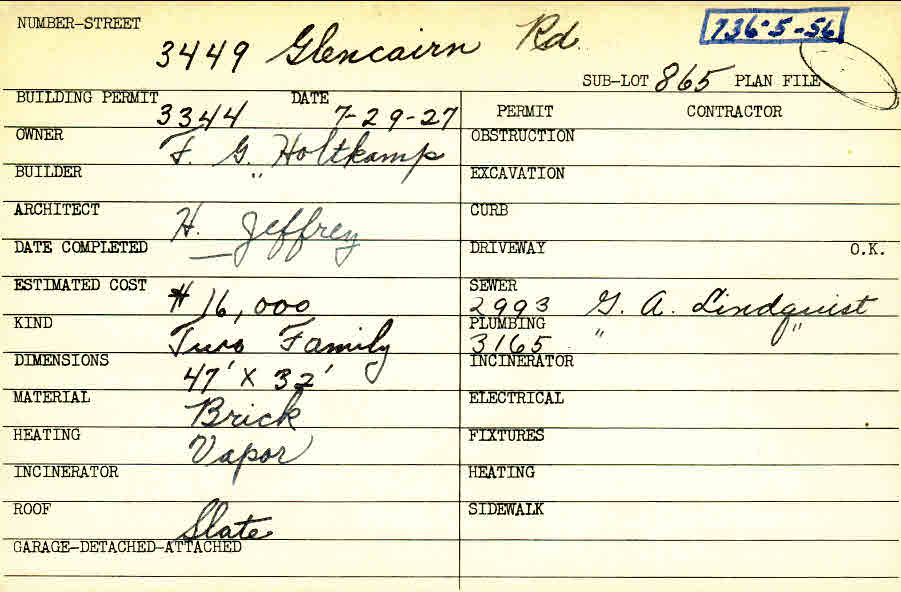 NUMBER-STREET
3449 Glencairn Rd.
736-5-56
SUB-LOT 865 PLAN FILE
BUILDING PERMIT DATE
3344 7-29-27
OWNER
F. G. Holtkamp
BUILDER
"
ARCHITECT
H. Jeffrey
DATE COMPLETED
ESTIMATED COST
$16,000
KIND
Two Family
DIMENSIONS
47' X 32'
MATERIAL
Brick
HEATING
Vapor
INCINERATOR
ROOF
Slate
GARAGE-DETACHED-ATTACHED
PERMIT CONTRACTOR
OBSTRUCTION
EXCAVATION
CURB
DRIVEWAY O.K.
SEWER
2993 G. A. Lindquist
PLUMBING
3165 " "
INCINERATOR
ELECTRICAL
FIXTURES
HEATING
SIDEWALK